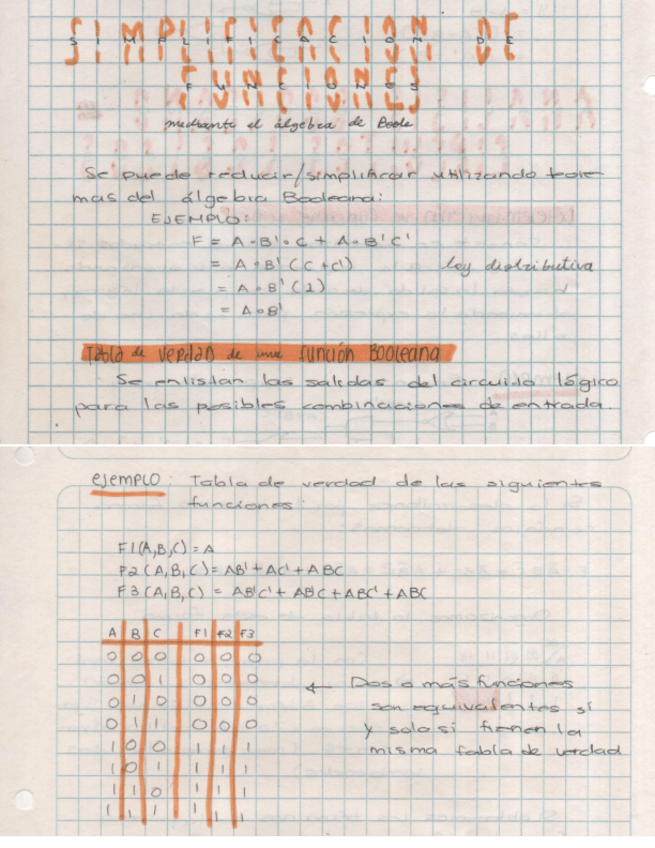 SIMPLIFICACION DE
FUNCIONES
mediante el álgebra de Boole
Se puede reducir/simplificar utilizando teore
mas del álgebra Booleana:
EJEMPLO:
F = A·B'·C + A·B'C'
= A·B'(C+C')   ley distributiva
= A·B'(1)
= A·B'
Tabla de verdad de una función Booleana
Se enlistan las salidas del circuito lógico
para las posibles combinaciones de entrada.
ejemplo: Tabla de verdad de las siguientes
funciones:
F1(A,B,C) = A
F2(A,B,C) = AB'+AC'+ABC
F3(A,B,C) = AB'C'+AB'C+ABC'+ABC
A B C F1 F2 F3
0 0 0 0 0 0
0 0 1 0 0 0 ← Dos o más funciones
0 1 0 0 0 0 son equivalentes si
0 1 1 0 0 0 y solo si tienen la
1 0 0 1 1 1 misma tabla de verdad
1 0 1 1 1 1
1 1 0 1 1 1
1 1 1 1 1 1